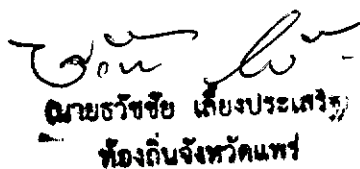 (นายธวัชชัย เลี้ยงประเสริฐ)
ท้องถิ่นจังหวัดแพร่